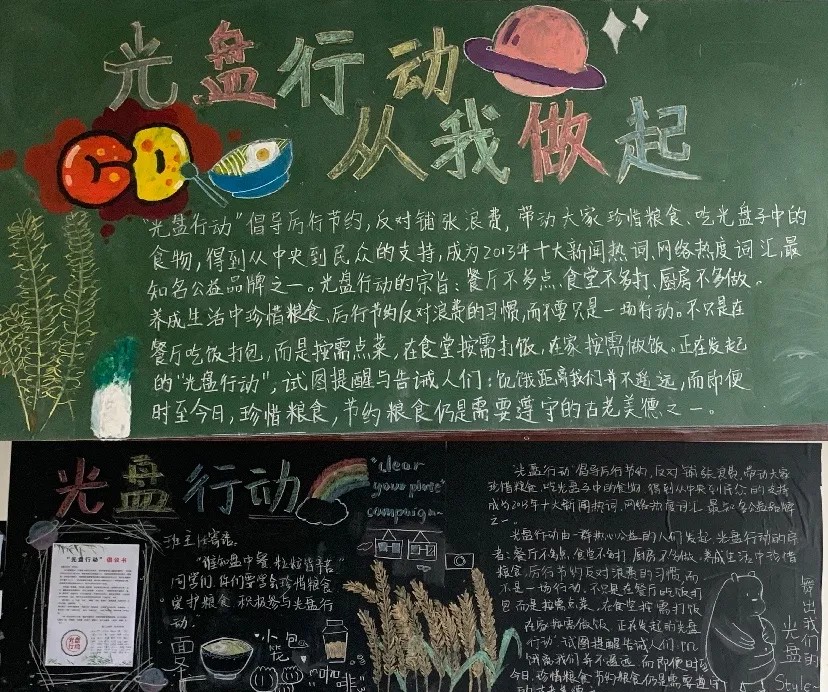 光盘行动
从我做起
CD
"光盘行动"倡导厉行节约,反对铺张浪费,带动大家珍惜粮食、吃光盘子中的
食物,得到从中央到民众的支持,成为2013年十大新闻热词、网络热度词汇,最
知名公益品牌之一。光盘行动的宗旨:餐厅不多点、食堂不多打、厨房不多做。
养成生活中珍惜粮食、厉行节约反对浪费的习惯,而不要只是一场行动。不只是在
餐厅吃饭打包,而是按需点菜,在食堂按需打饭,在家按需做饭。正在发起
的"光盘行动",试图提醒与告诫人们:饥饿距离我们并不遥远,而即便
时至今日,珍惜粮食,节约粮食仍是需要遵守的古老美德之一。
光盘行动
"clear
your plate"
campaign~
"光盘行动"倡议书
光盘
行动
班主任寄语:
"谁知盘中餐,粒粒皆辛苦"
同学们,你们要学会珍惜粮食
爱护粮食,积极参与光盘行
动。
面
小笼包
咖啡
"光盘行动"倡导厉行节约,反对铺张浪费,带动大家
珍惜粮食、吃光盘子中的食物,得到从中央到民众的支持
成为2013年十大新闻热词、网络热度词汇,最知名公益品牌
之一。
光盘行动由一群热心公益的人们发起,光盘行动的宗
旨:餐厅不多点、食堂不多打、厨房不多做。养成生活中珍惜
粮食、厉行节约反对浪费的习惯,而
不是一场行动。不只是在餐厅吃饭打
包,而是按需点菜,在食堂按需打饭
在家按需做饭。正在发起的"光盘
行动",试图提醒告诫人们:饥
饿距我们并不遥远,而即便时至
今日,珍惜粮食,节约粮食仍是需要遵守
我们的
光盘
Style~